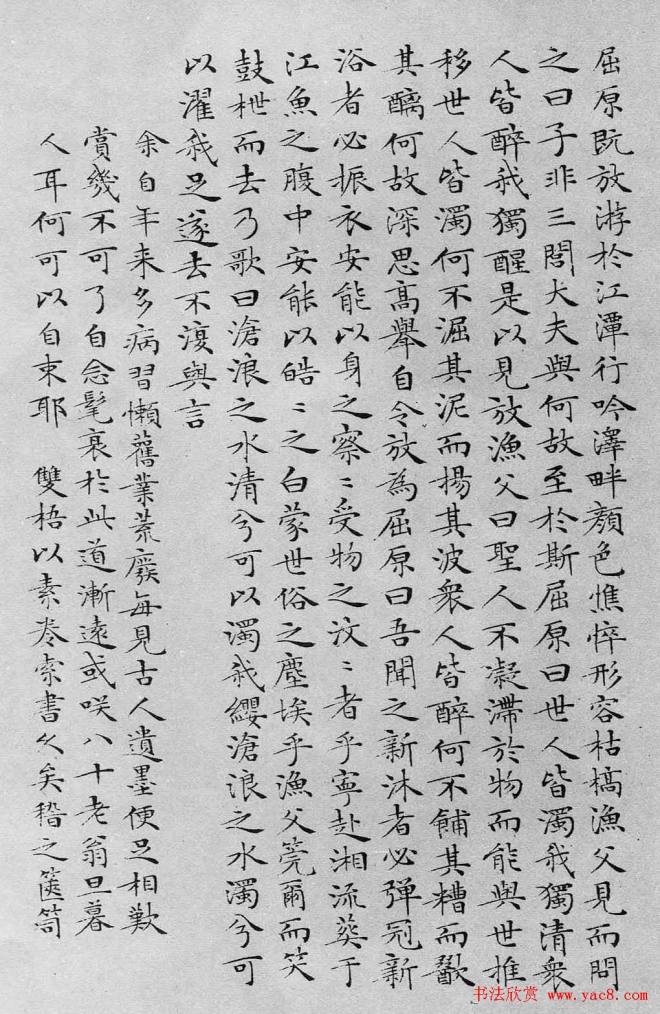 屈原既放游於江潭行吟澤畔顏色憔悴形容枯槁漁父見而問
之曰子非三閭大夫與何故至於斯屈原曰世人皆濁我獨清衆
人皆醉我獨醒是以見放漁父曰聖人不凝滯於物而能與世推
移世人皆濁何不淈其泥而揚其波衆人皆醉何不餔其糟而歠
其醨何故深思高舉自令放為屈原曰吾聞之新沐者必彈冠新
浴者必振衣安能以身之察〻受物之汶〻者乎寧赴湘流葬于
江魚之腹中安能以皓〻之白蒙世俗之塵埃乎漁父莞爾而笑
鼓枻而去乃歌曰滄浪之水清兮可以濁我纓滄浪之水濁兮可
以濯我足遂去不復與言
余自年来多病習懶舊業荒廢每見古人遺墨便足相歎
賞幾不可了自念髦衰於此道漸遠或咲八十老翁旦暮
人耳何可以自束耶 雙梧以素卷索書久矣稽之篋笥
书法欣赏 http://www.yac8.com